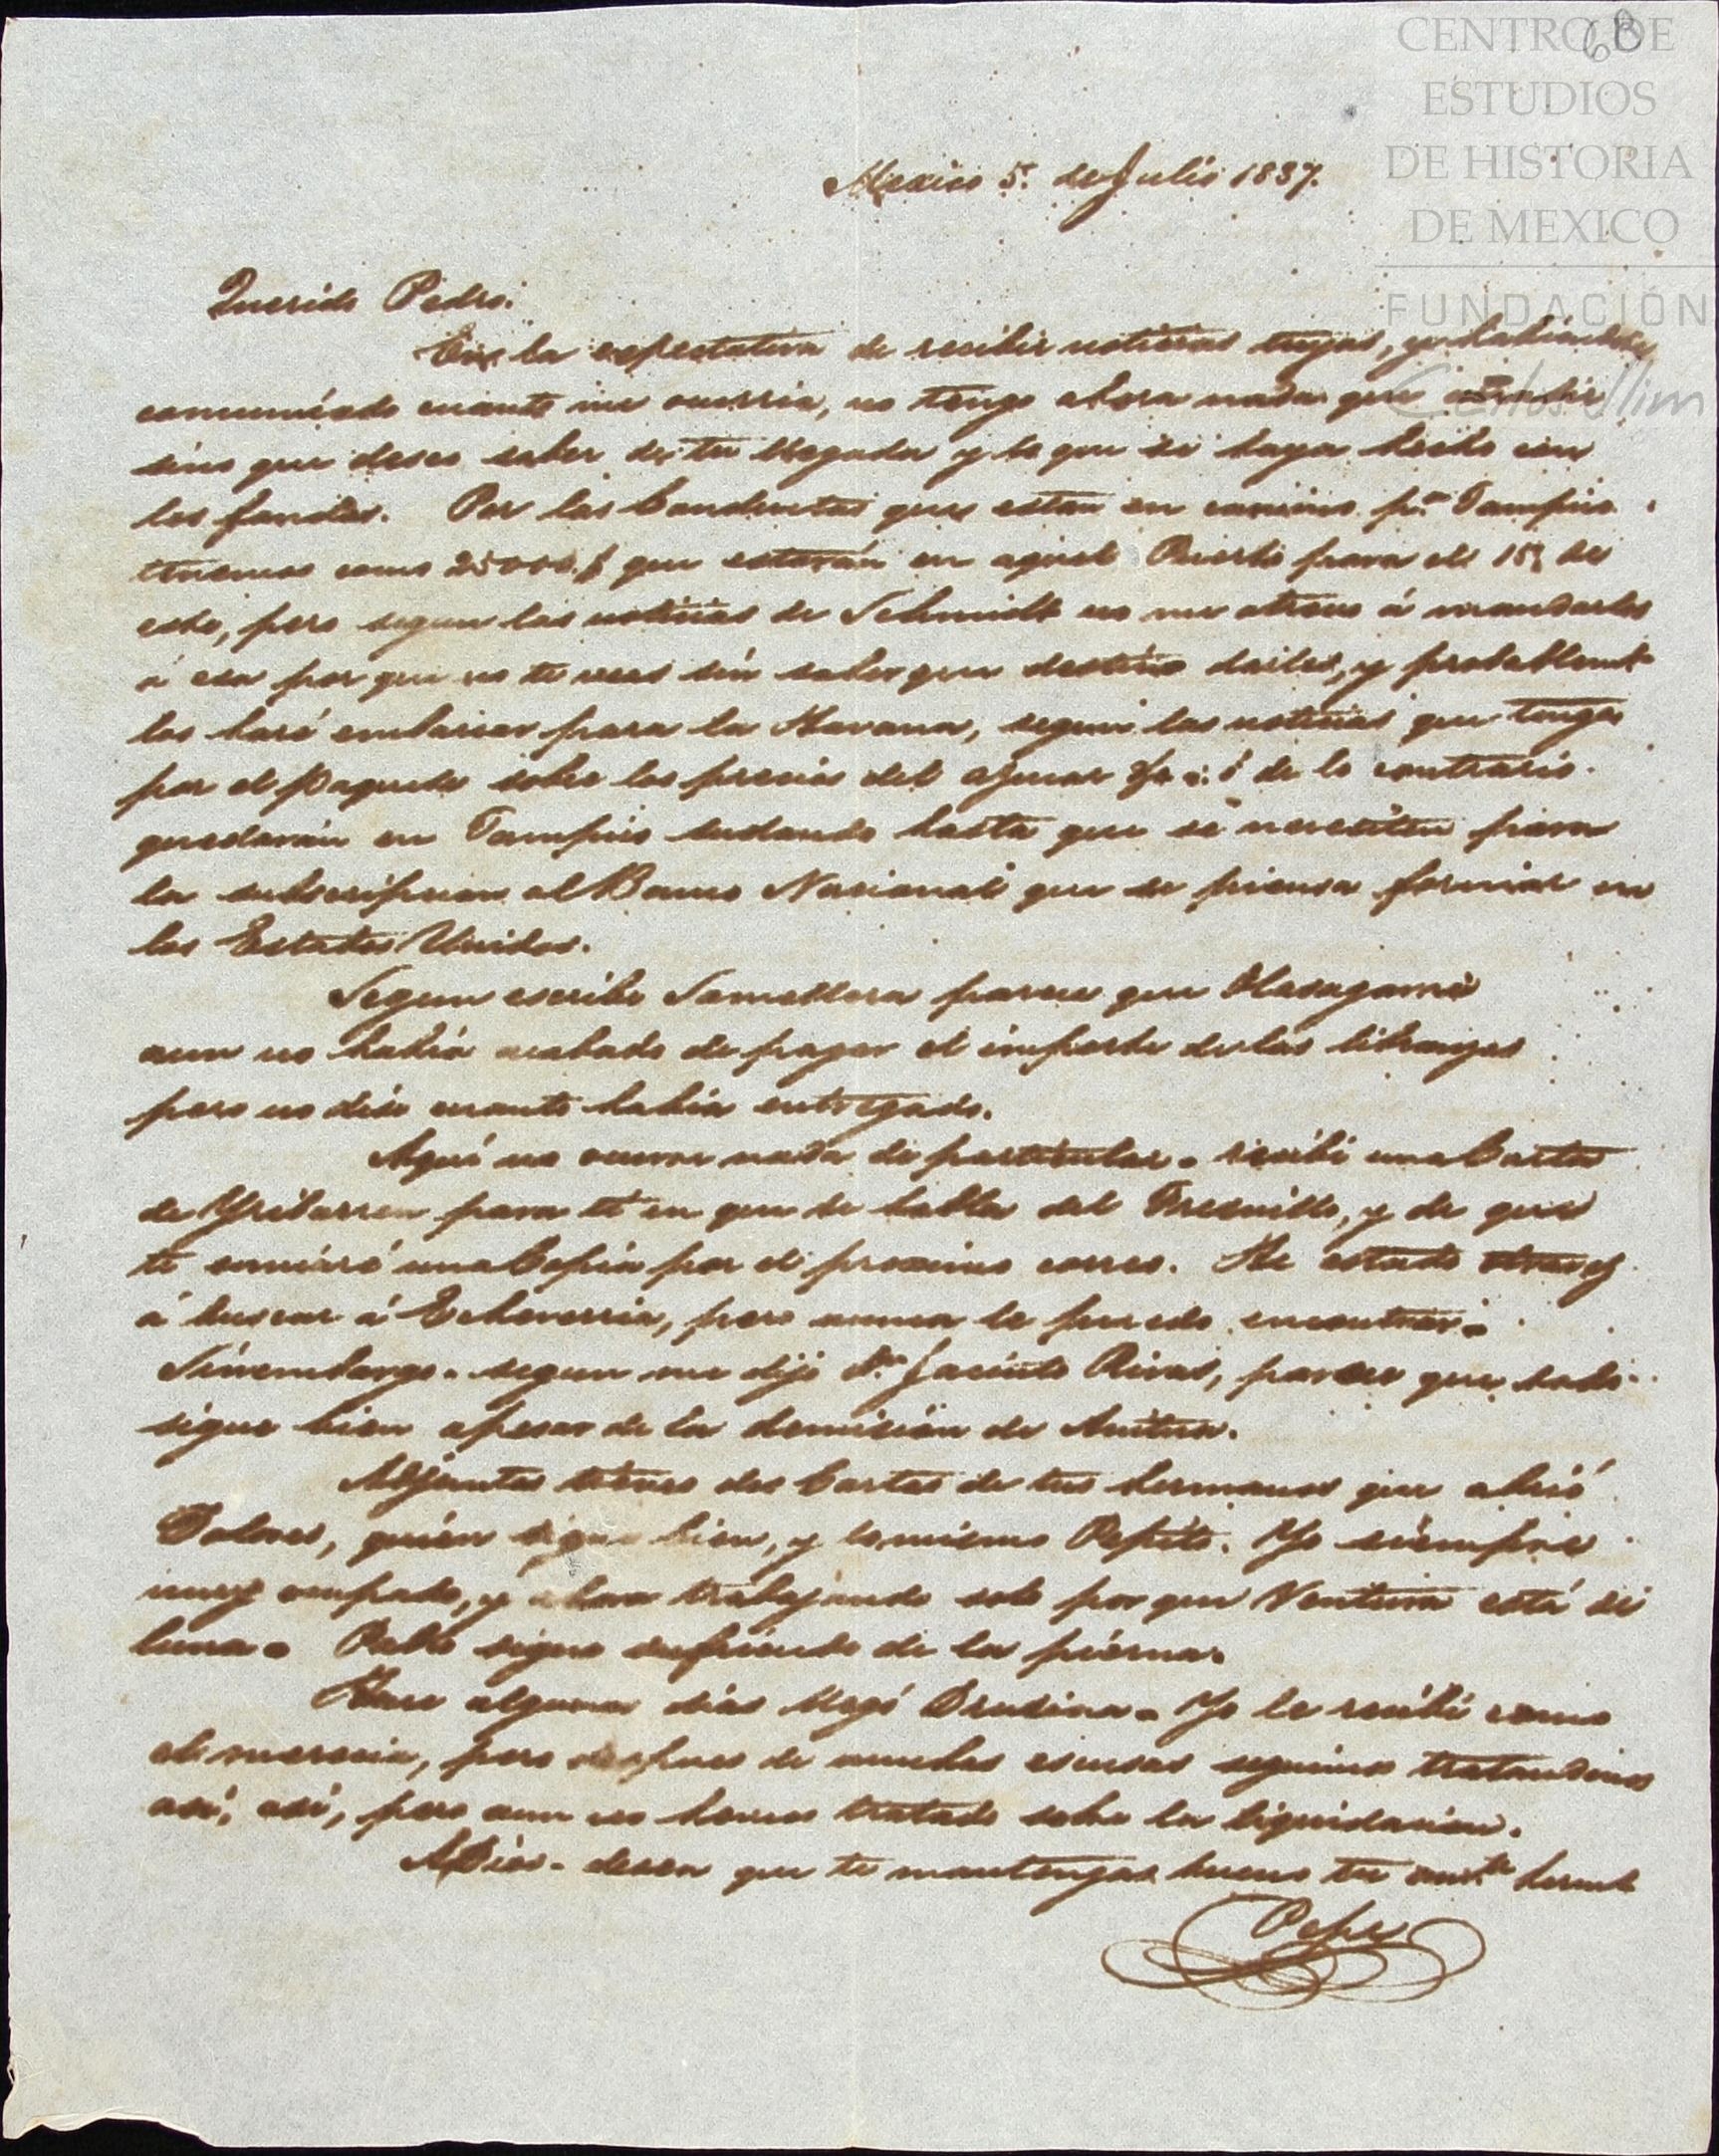 68
CENTRO DE
ESTUDIOS
DE HISTORIA
DE MEXICO
FUNDACIÓN
Carlos Slim
Mexico 5. de Julio 1837.
Querido Pedro:
En la expectativa de recibir noticias tuyas, y habiendote
comunicado cuanto me ocurria, no tengo ahora nada que
sino que deseo saber de tu llegada y lo que se haya hecho con
los fondos. Por las Conductas que estan en camino pa. Tampico
tenemos como 25000.$ que estarán en aquel Puerto para el 15 de
este, pero segun las noticias de Schmidt no me atrevo á mandarlos
á esa por que no te veas sin saber que destino darles, y probablemte
los haré embarcar para la Havana, segun las noticias que tenga
por el Paquete sobre los precios del azucar ó de lo contrario
quedarán en Tampico sudando hasta que se necesiten para
la subscripcion al Banco Nacional que se piensa formar en
los Estados Unidos.
Segun escribe Jamellera parece que Olasagarre
aun no habia acabado de pagar el importe de las libranzas
pero no dice cuanto habia entregado.
Aquí no ocurre nada de particular. recibí una Carta
de Yribarren para ti en que se habla del Fresnillo, y de que
te enviaré una Copia por el proximo correo. He estado
á buscar á Echeverria, pero nunca le puedo encontrar.
Sinembargo. segun me dijo Dn. Jacinto Rivas, parece que todo
sigue bien apesar de la demisión de
Adjuntas tienes dos Cartas de tus hermanos que abrió
Dolores, quién sigue bien, y lo mismo Pepito. Yo siempre
muy ocupado, y ahora trabajando solo por que Ventura está de
luna. Pablo sigue sufriendo de la pierna.
Hace algunos dias llegó Drusina. Yo le recibí como
el merecia, pero despues de muchas escusas seguimos tratandonos
asi, asi, pero aun no hemos tratado sobre la liquidacion.
ADios. desea que te mantengas bueno tu hermo
Pepe